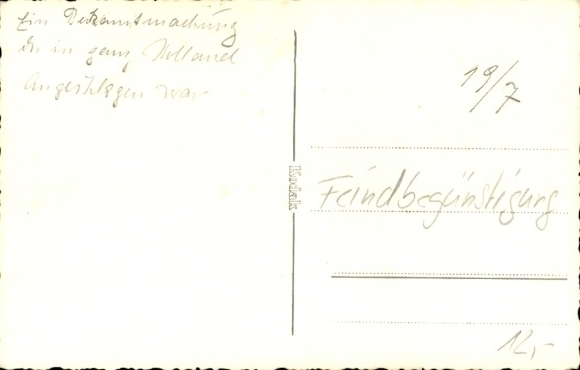 Ein Bekanntmachung
die in ganz Holland
Angeschlagen war
19/7
Kodak
Feindbegünstigung
12,-